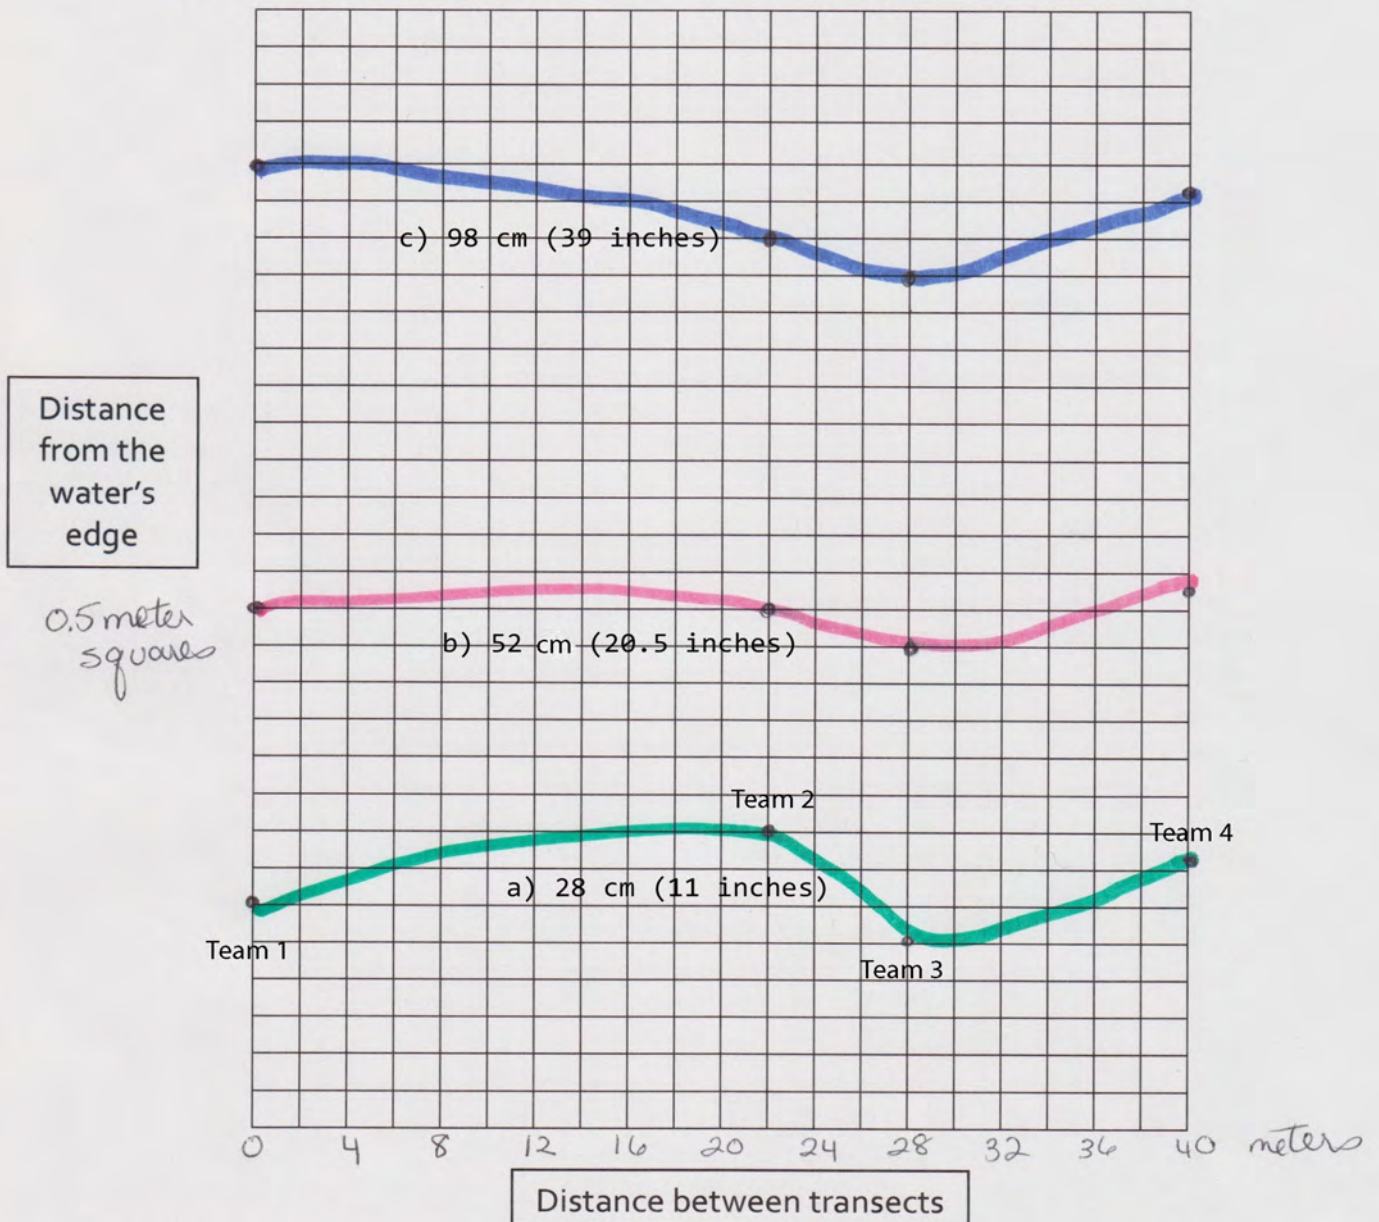 c) 98 cm (39 inches)
Distance
from the
water's
edge
0.5 meter
squares
b) 52 cm (20.5 inches)
Team 2
Team 4
a) 28 cm (11 inches)
Team 1
Team 3
0 4 8 12 16 20 24 28 32 36 40 meters
Distance between transects